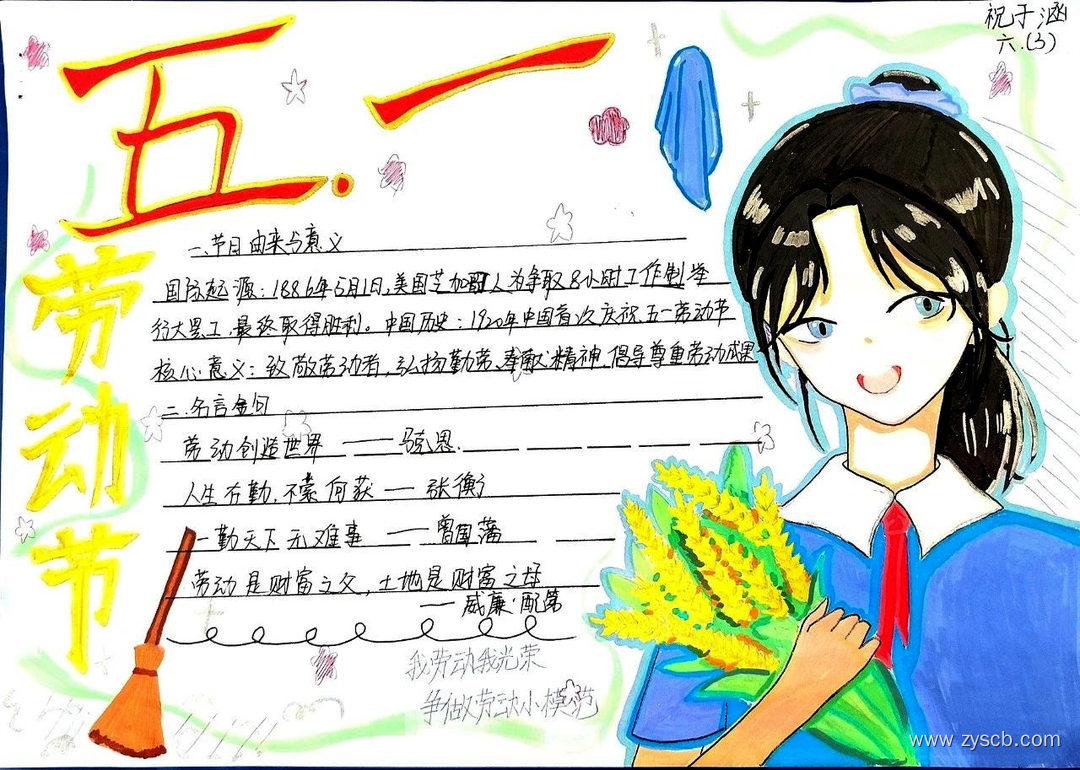 祝于涵
六.(3)
五.一
劳动节
一.节日由来与意义
国际起源:1886年5月1日,美国芝加哥工人为争取8小时工作制举
行大罢工,最终取得胜利。中国历史:1920年中国首次庆祝五一劳动节
核心意义:致敬劳动者,弘扬勤劳、奉献精神,倡导尊重劳动成果
二.名言金句
劳动创造世界 —— 马克思.
人生在勤,不索何获 — 张衡
一勤天下无难事 —— 曾国藩
劳动是财富之父,土地是财富之母
—— 威廉·配第
我劳动我光荣
争做劳动小模范
www.zyscb.com